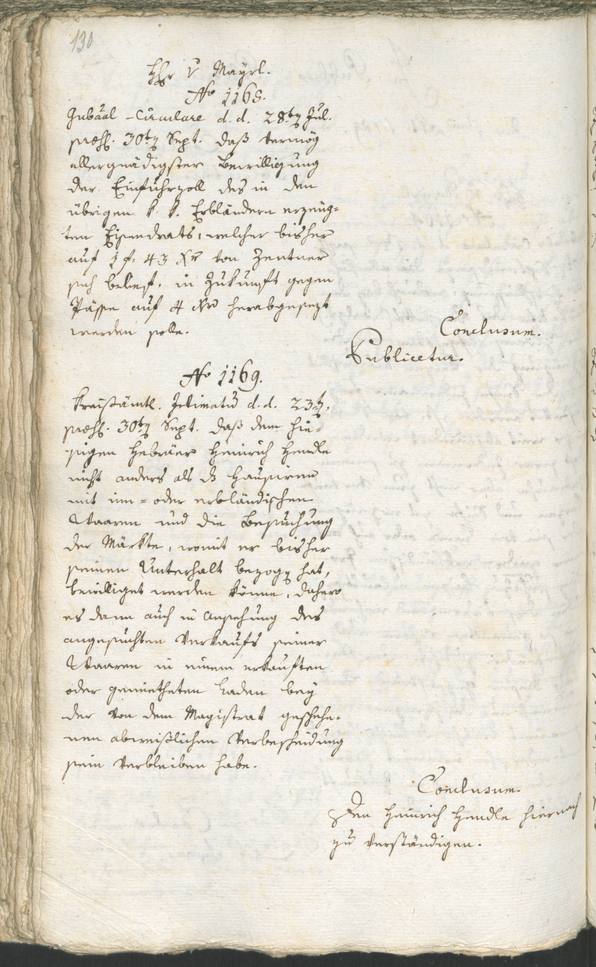 130
Hr. v. Mayrl.
No 1168.
Gubernal-Circulare d. d. 28ten Jul.
præs. 30ten Sept. daß vermög
allergnädigster Bewilligung
der Einfuhrzoll des in den
übrigen k. k. Erbländern erzeug-
ten Eisendrats, welcher bisher
auf 1 f. 43 Xr vom Zentner
sich belief, in Zukunft gegen
Pässe auf 4 Xr herabgesezt
werden solle.
Conclusum.
Publicetur.
No 1169.
Kreisämtl. Intimatum d. d. 23ten
præs. 30ten Sept. daß dem hie-
sigen Hebräer Heinrich Hendle
nicht anders als das Hausiren
mit inn- oder erbländischen
Waaren und die Besuchung
der Märkte, womit er bisher
seinen Unterhalt bezogen hat,
bewilliget werden könne, daher
es dann auch in Ansehung des
angesuchten Verkaufs seiner
Waaren in einem erkauften
oder gemietheten Laden bey
der von dem Magistrat geschehe-
nen abweislichen Verbescheidung
sein Verbleiben habe.
Conclusum.
Den Heinrich Hendle hiernach
zu verständigen.